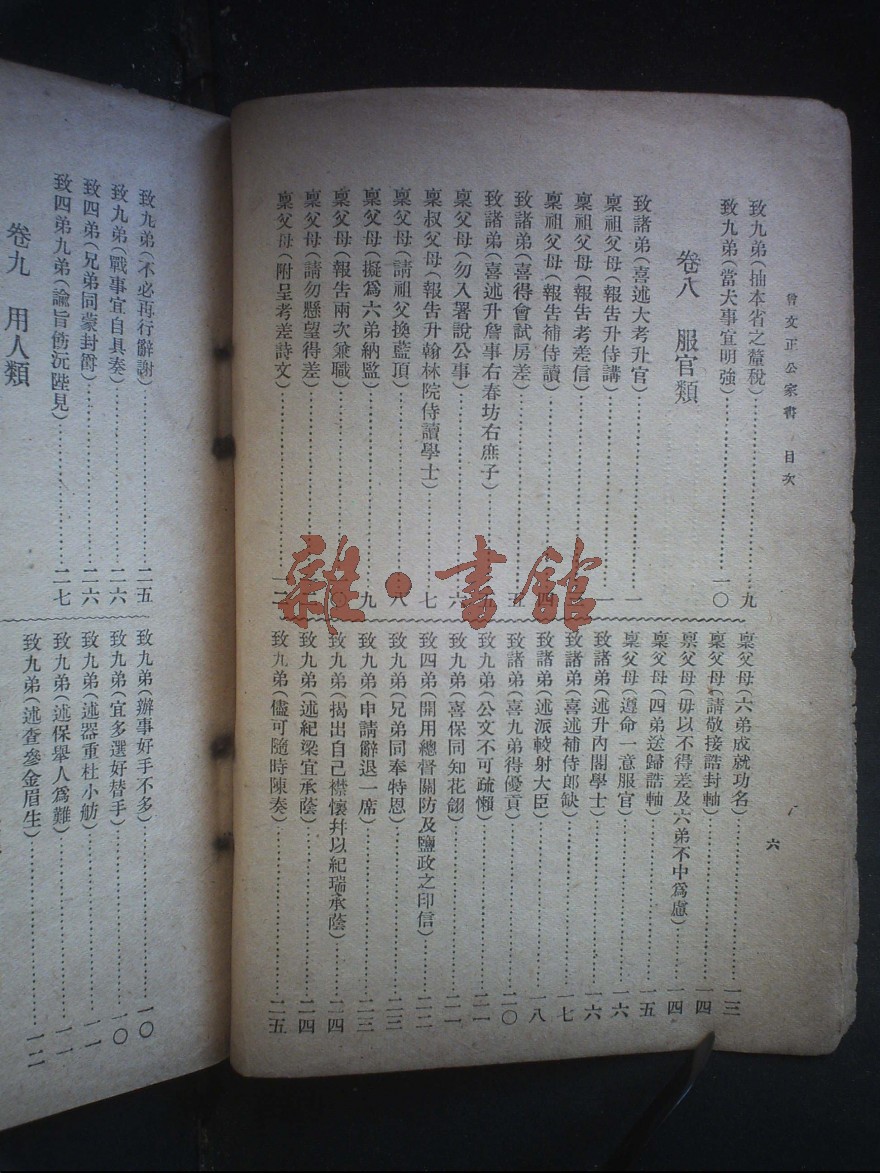 曾文正公家書　目次
六
致九弟(抽本省之釐稅)……九
致九弟(當大事宜明強)……一〇
卷八　服官類
致諸弟(喜述大考升官)……一
稟祖父母(報告升侍講)……一
稟祖父母(報告考差信)
稟祖父母(報告補侍讀)……四
致諸弟(喜得會試房差)……五
致諸弟(喜述升詹事右春坊右庶子)
稟父母(勿入署說公事)……六
稟叔父母(報告升翰林院侍讀學士)……七
稟父母(請祖父換藍頂)……八
稟父母(擬爲六弟納監)……九
稟父母(報告兩次兼職)
稟父母(請勿懸望得差)
稟父母(附呈考差詩文)
稟父母(六弟成就功名)……一三
稟父母(請敬接誥封軸)……一四
稟父母(毋以不得差及六弟不中爲慮)……一四
稟父母(四弟送歸誥軸)……一五
稟父母(遵命一意服官)……一六
致諸弟(述升內閣學士)……一六
致諸弟(喜述補侍郎缺)……一七
致諸弟(述派較射大臣)……一八
致諸弟(喜九弟得優貢)……二〇
致九弟(公文不可疏懶)……二一
致九弟(喜保同知花翎)……二一
致四弟(開用總督關防及鹽政之印信)……二二
致九弟(兄弟同奉特恩)……二三
致九弟(申請辭退一席)……二三
致九弟(揭出自己襟懷幷以紀瑞承蔭)……二四
致九弟(述紀梁宜承蔭)……二四
致九弟(儘可隨時陳奏)……二五
致九弟(不必再行辭謝)……二五
致九弟(戰事宜自具奏)……二六
致四弟(兄弟同蒙封爵)……二六
致四弟九弟(諭旨飭沅陛見)……二七
卷九　用人類
致九弟(辦事好手不多)……一〇
致九弟(宜多選好替手)……一〇
致九弟(述器重杜小舫)……一一
致九弟(述保舉人爲難)……一一
致九弟(述查參金眉生)……一二
雜·書館